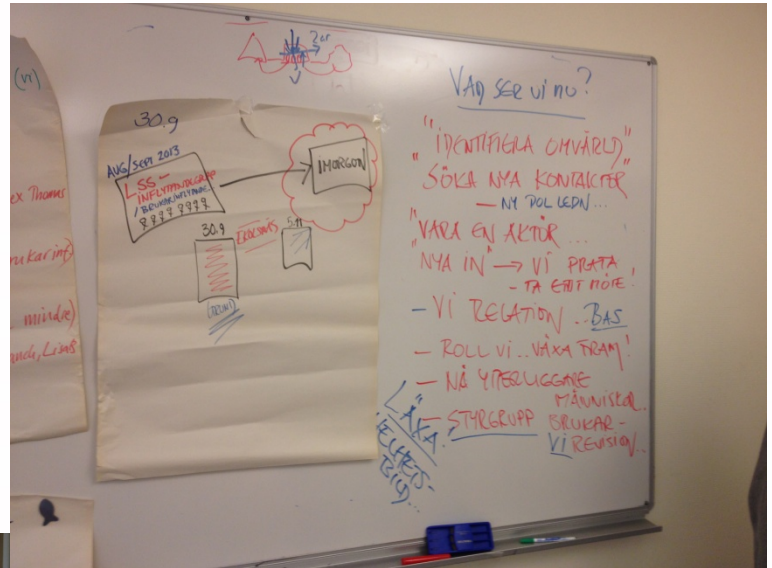 (vi)
ex Thomas
rukarinf)
mindre)
30.9
AUG/SEPT 2013
LSS-
INFLYTANDEGRUPP
/BRUKARINFLYTANDE
IMORGON
30.9
5.11
? år
VAD SER VI NU?
"IDENTIFIERA OMVÄRLD"
"SÖKA NYA KONTAKTER
- NY POL LEDN...
"VARA EN AKTÖR...
"NYA IN" → VI PRATA
- TA EGET MÖTE!
- VI RELATION.. BAS
- ROLL VI.. VÄXA FRAM!
- NÅ YTTERLIGGARE
MÄNNISKOR..
- STYRGRUPP BRUKAR-
VI REVISION..
"LÄXA"
HELHETS-
BILD...